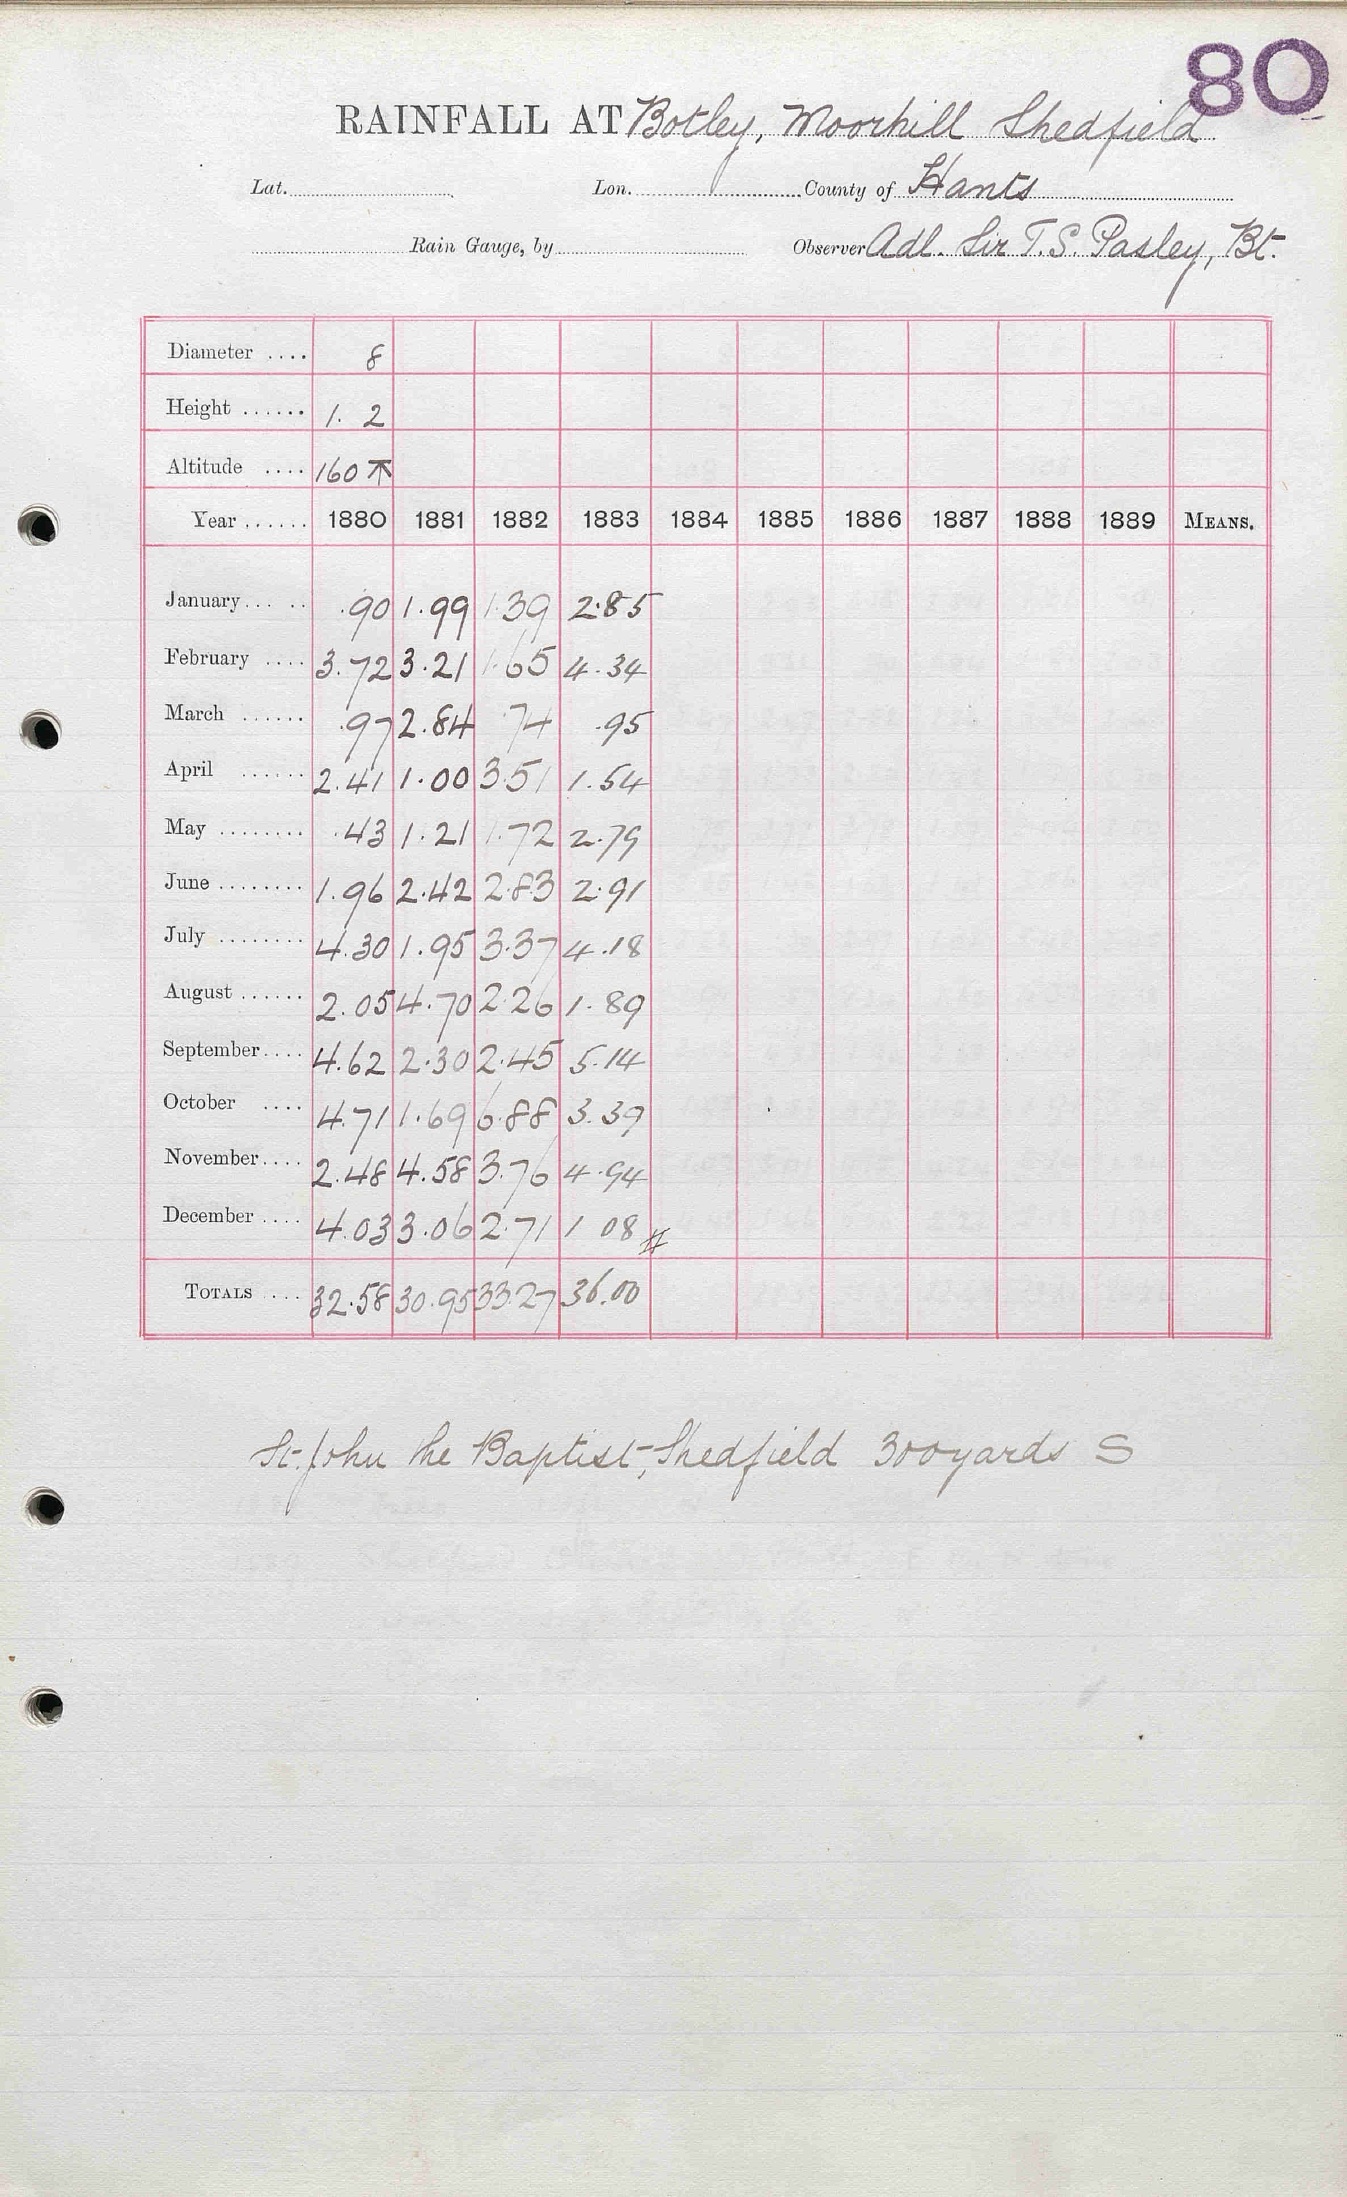 80
RAINFALL AT Botley, Moorhill Shedfield
Lat. Lon. County of Hants
Rain Gauge, by Observer Adl. Sir T.S. Pasley, Bt.
Diameter .... 8
Height ...... 1. 2
Altitude .... 160
Year ...... 1880 1881 1882 1883 1884 1885 1886 1887 1888 1889 MEANS.
January ... .. .90 1.99 1.39 2.85
February .... 3.72 3.21 1.65 4.34
March ...... .97 2.84 .74 .95
April ...... 2.41 1.00 3.51 1.54
May ........ .43 1.21 1.72 2.79
June ........ 1.96 2.42 2.83 2.91
July ........ 4.30 1.95 3.37 4.18
August ...... 2.05 4.70 2.26 1.89
September .... 4.62 2.30 2.45 5.14
October .... 4.71 1.69 6.88 3.39
November .... 2.48 4.58 3.76 4.94
December .... 4.03 3.06 2.71 1 08 #
TOTALS .... 32.58 30.95 33.27 36.00
St. John the Baptist, Shedfield 300 yards S